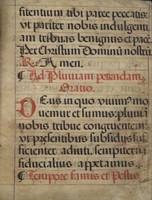 sitentium tibi parce peccatis:
ut pariter nobis indulgenti-
am tribuas benignus et pace
Per Christum Dominū nostrū
℞. Amen.
Ad Pluviam petendam
Oratio.
Deus in quo vivimꝰ mo
vemur et sumus: pluviā
nobis tribue congruentem
ut præsentibus subsidijs suf
ficienter adiuti, sempiterna
fiducialius appetamus.
Tempore famis et Pestis